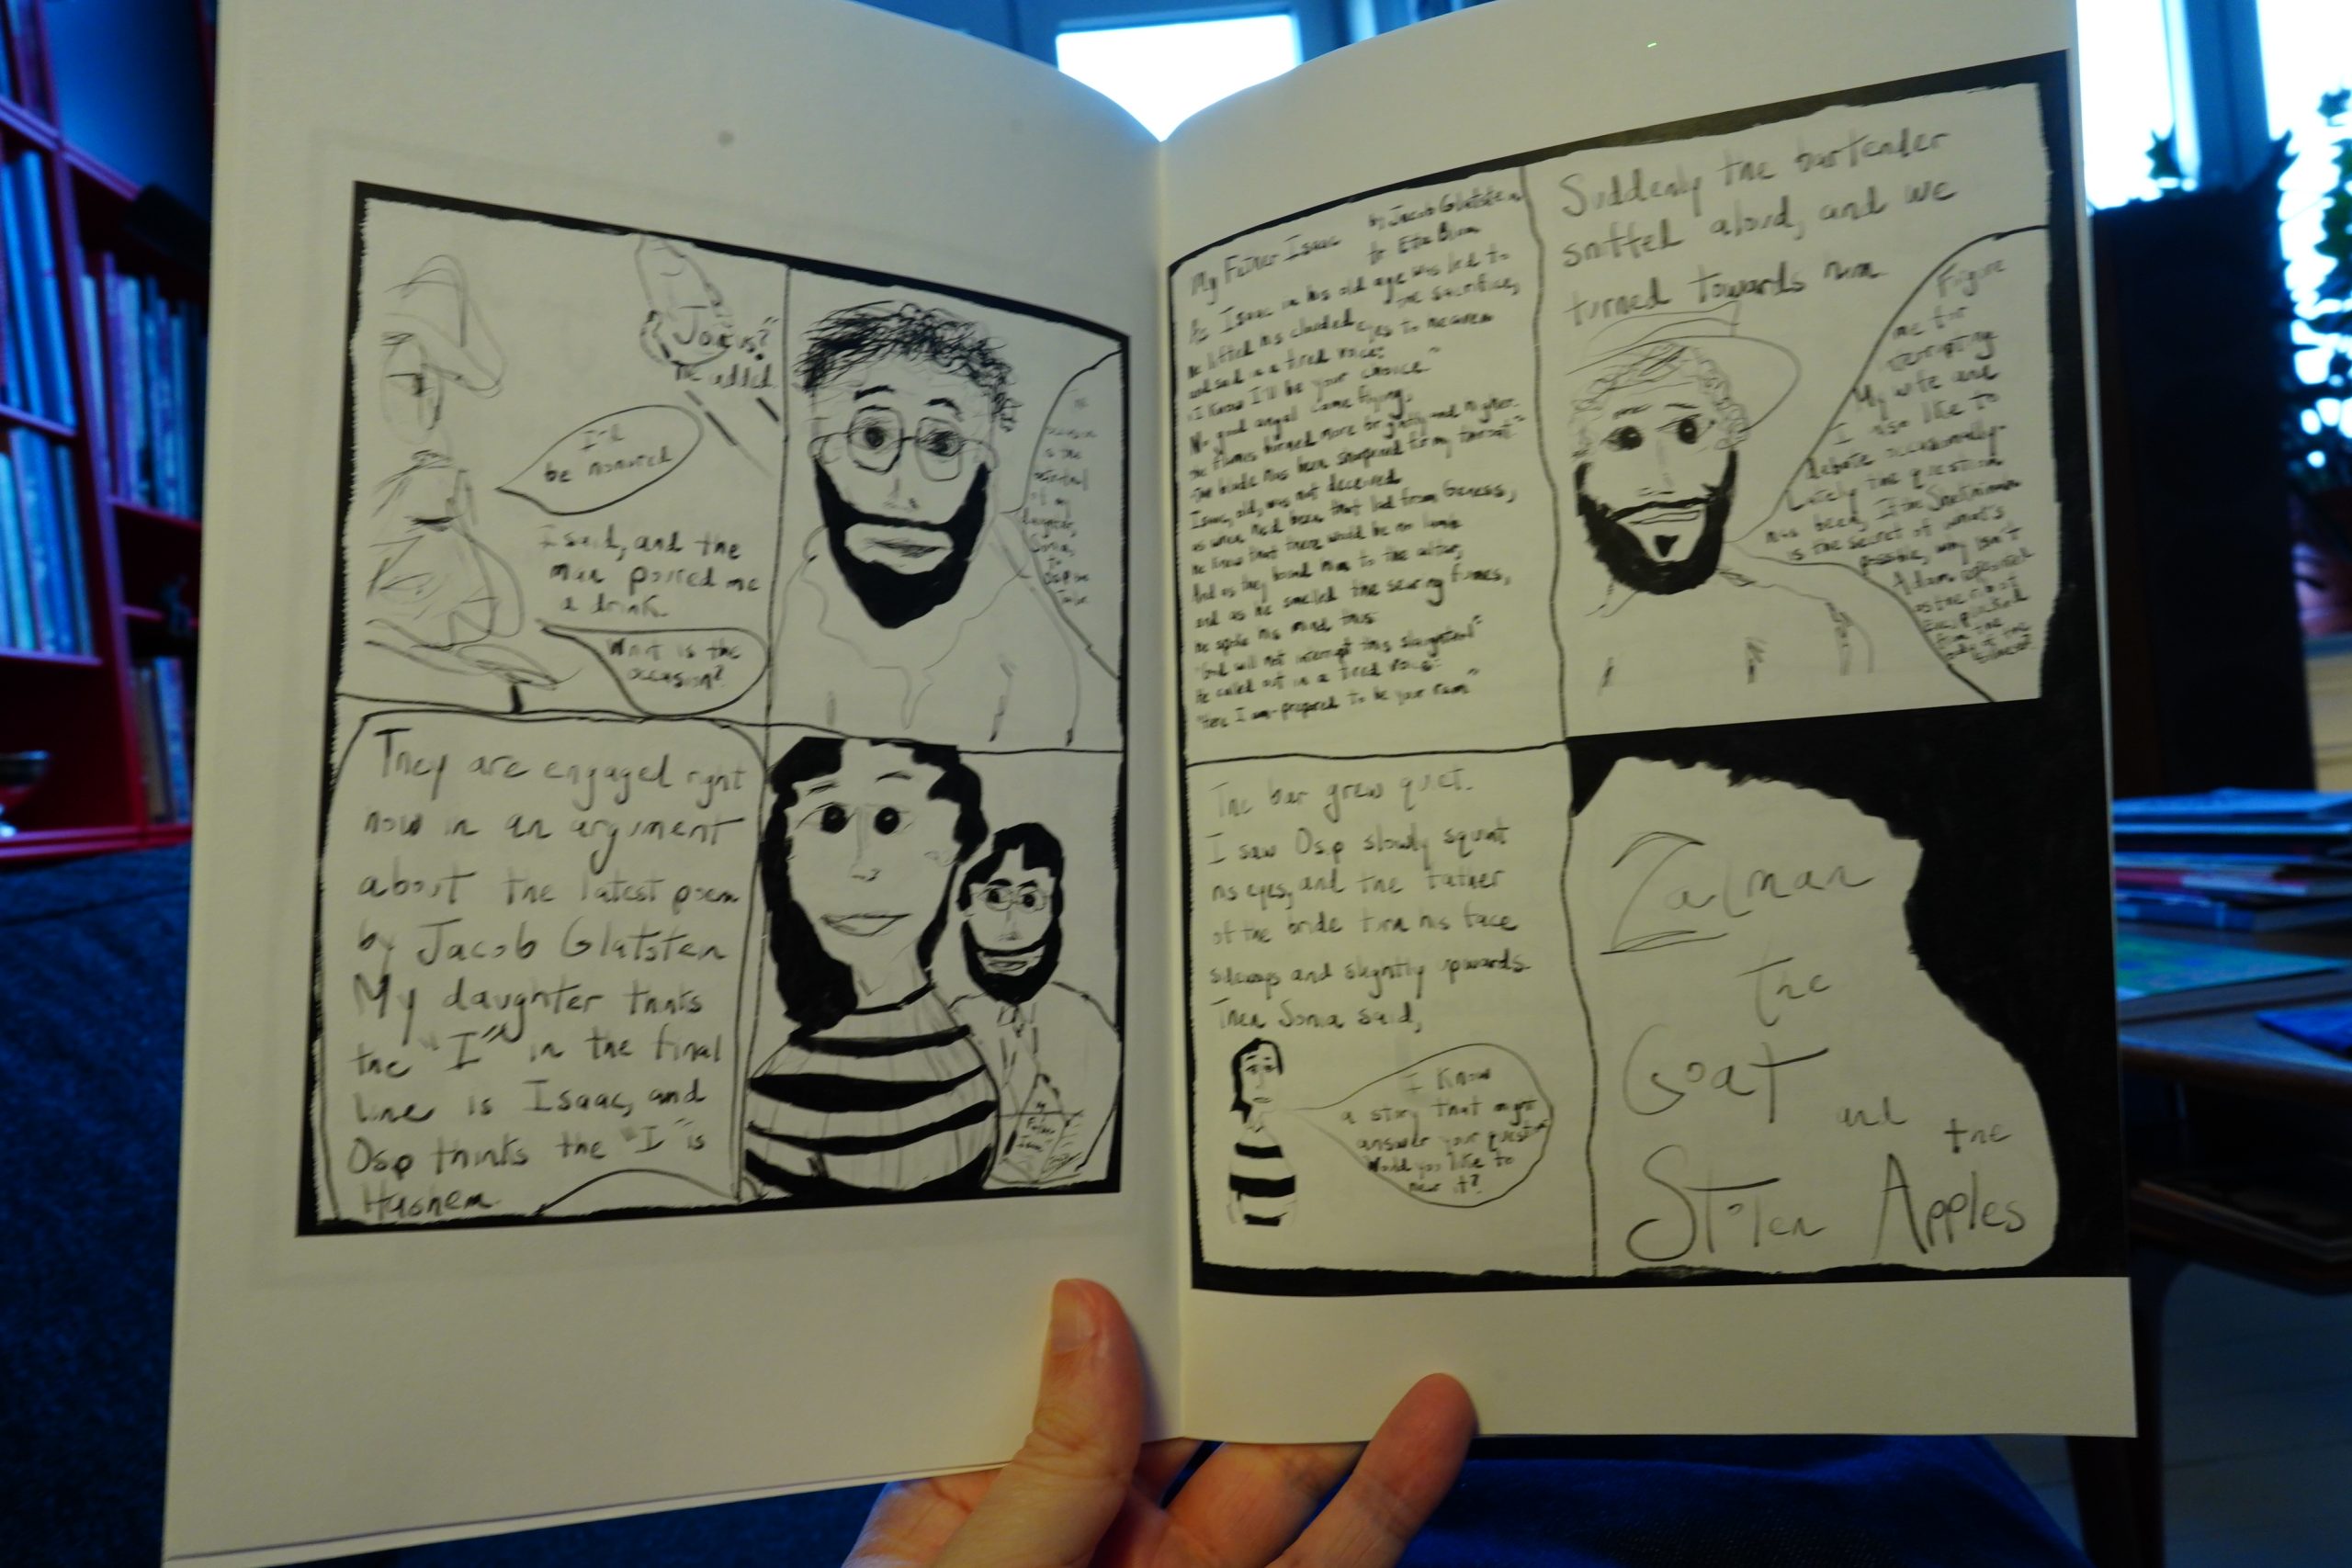 "Join us?"
he added.
I'd
be honored
I said, and the
man poured me
a drink.
What is the
occasion?
The
occasion
is the
betrothal
of my
daughter,
Sonia,
to
Osip
They are engaged right
now in an argument
about the latest poem
by Jacob Glatsten
My daughter thinks
the "I" in the final
line is Isaac, and
Osip thinks the "I" is
Hashem
My
Father
Isaac
My Father Isaac by Jacob Glatsten
to Etta Blum
As Isaac in his old age was led to
the sacrifice,
he lifted his clouded eyes to heaven
and said in a tired voice:
"I know I'll be your choice"
No good angel came flying.
the flames burned more brightly and higher.
"The blade has been sharpened for my throat"
Isaac, old, was not deceived
as when he'd been that lad from Genesis,
he knew that there would be no lamb
And as they bound him to the altar,
and as he smelled the searing fumes,
he spoke his mind thus
"God will not interrupt this slaughter!"
he called out in a tired voice:
"Here I am-prepared to be your ram"
Suddenly the bartender
sniffed aloud, and we
turned towards him
Figive
me for
My wife and
I also like to
debate occasionally.
Lately the question
has been, If the
is the secret of what's
possible, why isn't
Adam
as the ribat
from the
body of the
The bar grew quiet.
I saw Osip slowly squint
his eyes, and the father
of the bride turn his face
sideways and slightly upwards
Then Sonia said,
I know
a story that might
answer your question
Would you like to
hear it?
Zalman
the
Goat and the
Stolen Apples